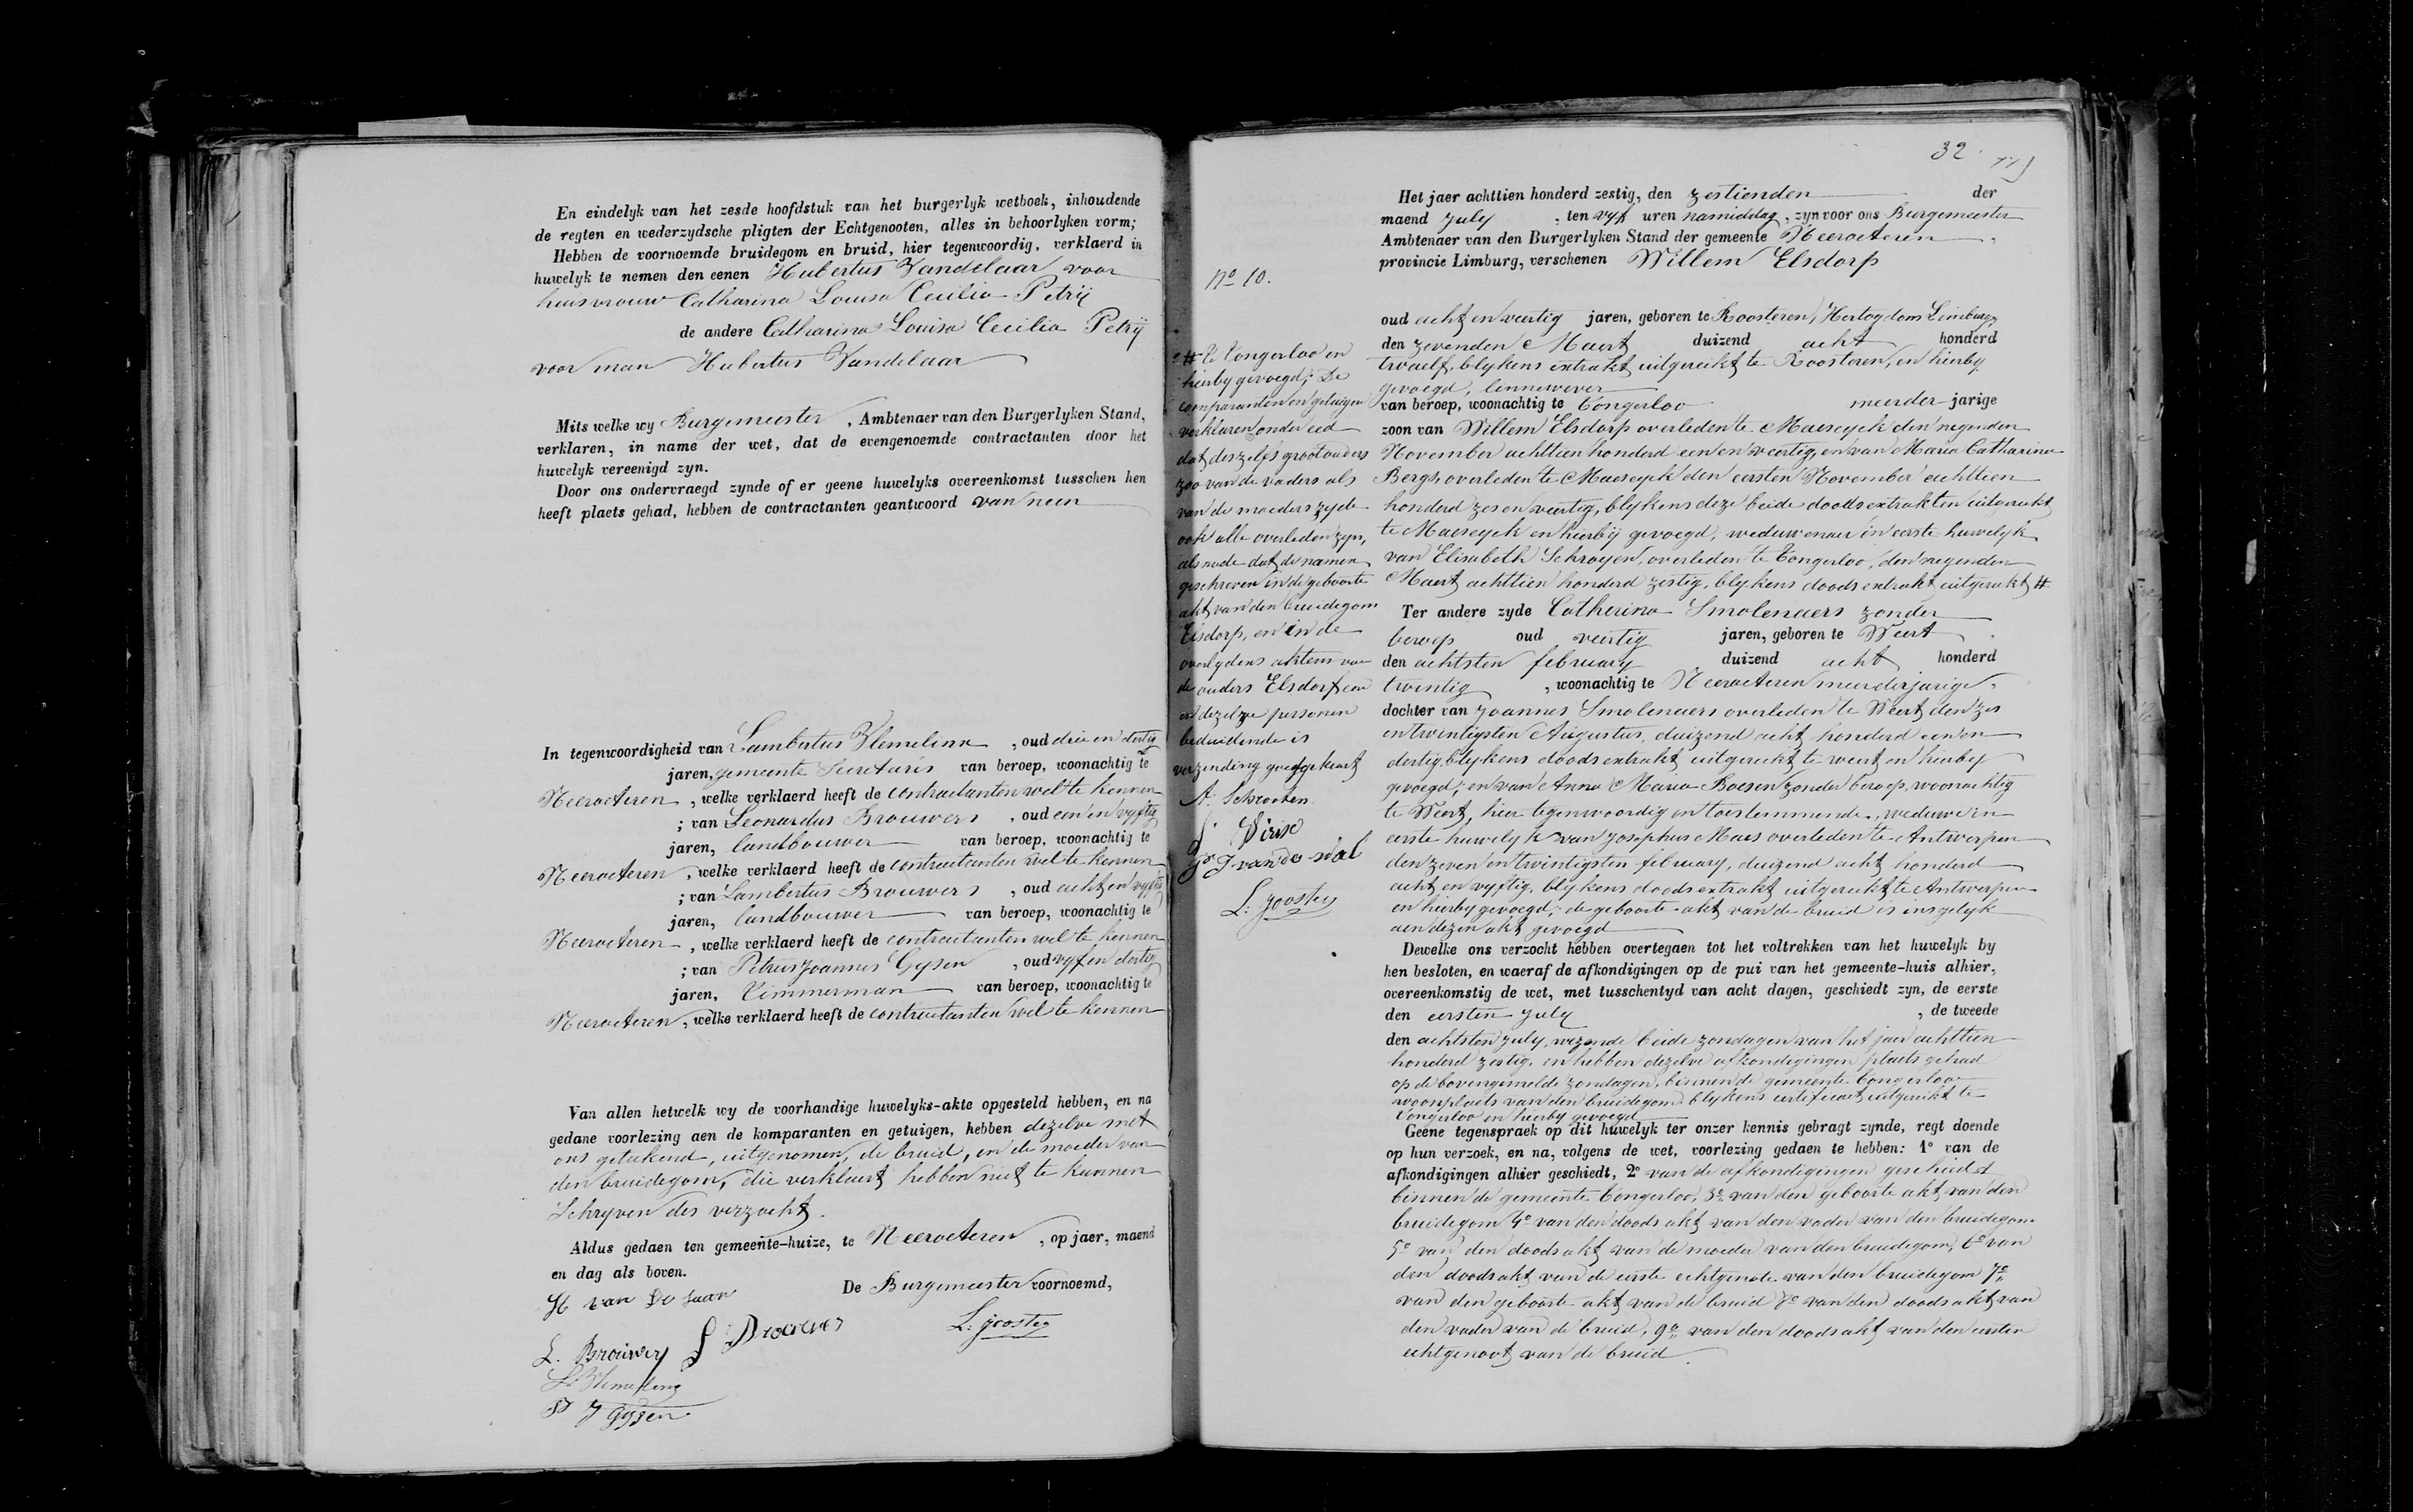 En eindelyk van het zesde hoofdstuk van het burgerlyk wetboek, inhoudende
de regten en wederzydsche pligten der Echtgenooten, alles in behoorlyken vorm;
Hebben de voornoemde bruidegom en bruid, hier tegenwoordig, verklaerd in
huwelyk te nemen den eenen Hubertus Vandelaar voor
huisvrouw Catharina Louisa Cecilia Petrij
de andere Catharina Louisa Cecilia Petrij
voor man Hubertus Vandelaar
Mits welke wy Burgemeester, Ambtenaer van den Burgerlyken Stand,
verklaren, in name der wet, dat de evengenoemde contractanten door het
huwelyk vereenigd zyn.
Door ons ondervraegd zynde of er geene huwelyks overeenkomst tusschen hen
heeft plaets gehad, hebben de contractanten geantwoord van neen
In tegenwoordigheid van Lambertus Vlemelinx, oud drie en dertig
jaren, gemeente Secretaris van beroep, woonachtig te
Neeroeteren, welke verklaerd heeft de contractanten wel te kennen
; van Leonardus Brouwers, oud een en vyftig
jaren, landbouwer van beroep, woonachtig te
Neeroeteren, welke verklaerd heeft de contractanten wel te kennen
; van Lambertus Brouwers, oud acht en vyftig
jaren, landbouwer van beroep, woonachtig te
Neeroeteren, welke verklaerd heeft de contractanten wel te kennen
; van Petrus Joannes Gysen, oud vyf en dertig
jaren, Timmerman van beroep, woonachtig te
Neeroeteren, welke verklaerd heeft de contractanten wel te kennen
Van allen hetwelk wy de voorhandige huwelyks-akte opgesteld hebben, en na
gedane voorlezing aen de komparanten en getuigen, hebben dezelve met
ons geteekend, uitgenomen, de bruid, en de moeder van
den bruidegom, die verklaert hebben niet te kunnen
Schryven des verzocht.
Aldus gedaen ten gemeente-huize, te Neeroeteren, op jaer, maend
en dag als boven.
De Burgemeester voornoemd,
H van De Laar
L: Joosten
L. Brouwers
J Gysen
32
Het jaer achttien honderd zestig, den zestienden der
maend July, ten vyf uren namiddag, zyn voor ons Burgemeester
Ambtenaer van den Burgerlyken Stand der gemeente Neeroeteren,
provincie Limburg, verschenen Willem Elsdorp
oud acht en veertig jaren, geboren te Roosteren, Hertogdom Limburg,
den zevenden Maert duizend acht honderd
twaelf, blykens extrakt uitgereikt te Roosteren, en hierby
gevoegd, linnewever
van beroep, woonachtig te Tongerloo meerder-jarige
zoon van Willem Elsdorp overleden te Maeseyck den negenden
November achttien honderd een en veertig, en van Maria Catharina
Bergs, overleden te Maeseyck den eersten November achttien
honderd zes en veertig, blykens deze beide doodsextrakten uitgereikt
te Maeseyck en hierby gevoegd, weduwenaer in eerste huwelyk
van Elisabeth Schroyen, overleden te Tongerloo, den negenden
Maert achttien honderd zestig, blykens doods extrakt uitgereikt #
Ter andere zyde Catharina Smolenaers zonder
beroep oud veertig jaren, geboren te Weert
den achtsten february duizend acht honderd
twintig, woonachtig te Neeroeteren meerderjarige
dochter van Joannes Smolenaers overleden te Weert den zes
en twintigsten Augustus, duizend acht honderd een en
dertig, blykens doods extrakt uitgereikt te weert en hierby
gevoegd; en van Anna Maria Boesen zonder beroep, woonachtig
te Weert, hier tegenwoordig en toestemmende, weduwe in
eerste huwelyk van Josephus Maes overleden te Antwerpen
den zeven en twintigsten february, duizend acht honderd
acht en vyftig, blykens doods extrakt uitgereikt te Antwerpen
en hierby gevoegd; de geboorte-akt van de bruid is insgelyk
aen dezen akt gevoegd
Dewelke ons verzocht hebben overtegaen tot het voltrekken van het huwelyk by
hen besloten, en waeraf de afkondigingen op de pui van het gemeente-huis alhier,
overeenkomstig de wet, met tusschentyd van acht dagen, geschiedt zyn, de eerste
den eersten July, de tweede
den achtsten July, wezende beide zondagen van het jaer achttien
honderd zestig, en hebben dezelve afkondigingen plaets gehad
op de bovengemelde zondagen, binnen de gemeente Tongerloo
woonplaets van den bruidegom, blykens certificaet uitgereikt te
Tongerloo en hierby gevoegd
Geene tegenspraek op dit huwelyk ter onzer kennis gebragt zynde, regt doende
op hun verzoek, en na, volgens de wet, voorlezing gedaen te hebben: 1º van de
afkondigingen alhier geschiedt, 2º van de afkondigingen geschiedt
binnen de gemeente Tongerloo, 3º van den geboorte akt van den
bruidegom 4º van den doods akt van den vader van den bruidegom
5º van den doods akt van de moeder van den bruidegom, 6º van
den doods akt van de eerste echtgenote van den bruidegom 7º
van den geboorte akt van de bruid 8º van den doods akt van
den vader van de bruid, 9º van den doods akt van den eersten
echtgenoot van de bruid.
Nº 10.
# te Tongerloo en
hierby gevoegd; De
comparanten en getuigen
verklaren onder eed
dat deszelfs grootouders
zoo van de vaders als
van de moeders zyde
ook alle overleden zyn,
alsmede dat de namen
geschreven in de geboorte
akt van den bruidegom
Elsdorp, en in de
overlydens akten van
de ouders Elsdorf een
en dezelve personen
beduidende is
verzending goedgekeurt
A: Schrooten
L: Joosten